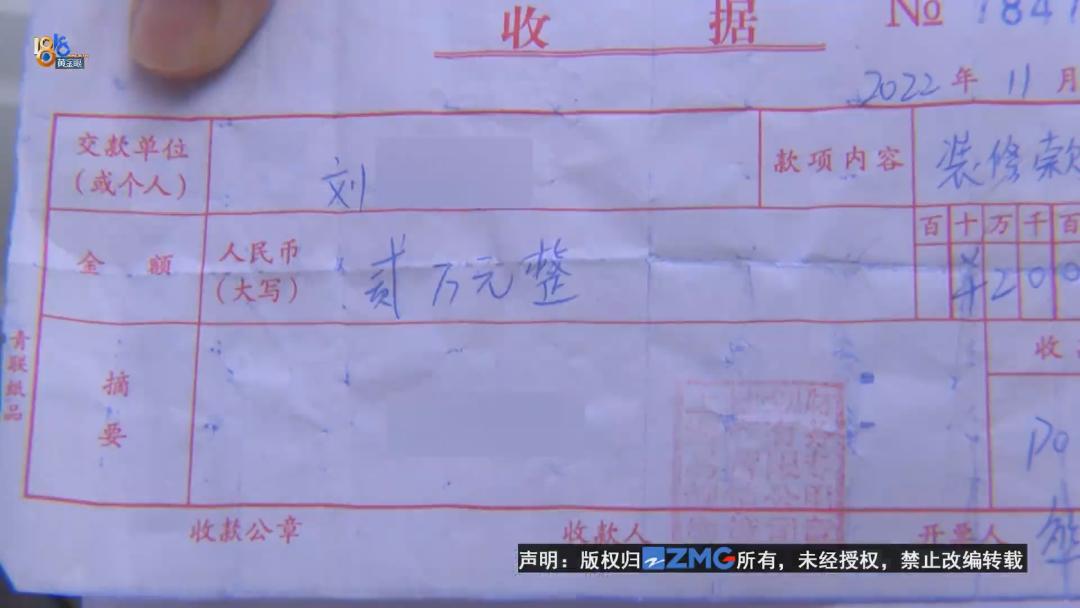 1818
黄金眼
收 据
№ 1841
2022 年 11 月
交款单位
(或个人)
刘
款项内容
装修款
金 额
人民币
(大写)
贰万元整
百 十 万 千 百
¥ 2 0 0
摘
要
收
青联纸品
收款公章
收款人
开票人
声明：版权归ZMG所有，未经授权，禁止改编转载